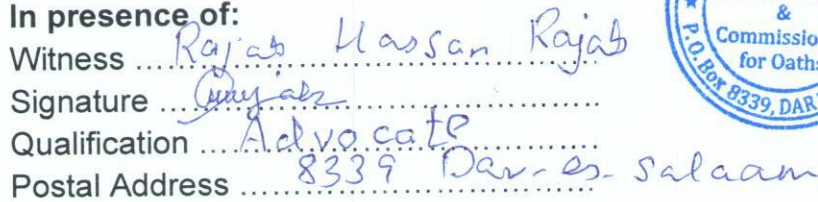 In presence of:
Witness ...Rajab Hassan Rajab
Signature ...
Qualification ...Advocate
Postal Address ...8339 Dar-es-Salaam
&
Commissio
for Oaths
P.O. Box 8339, DAR